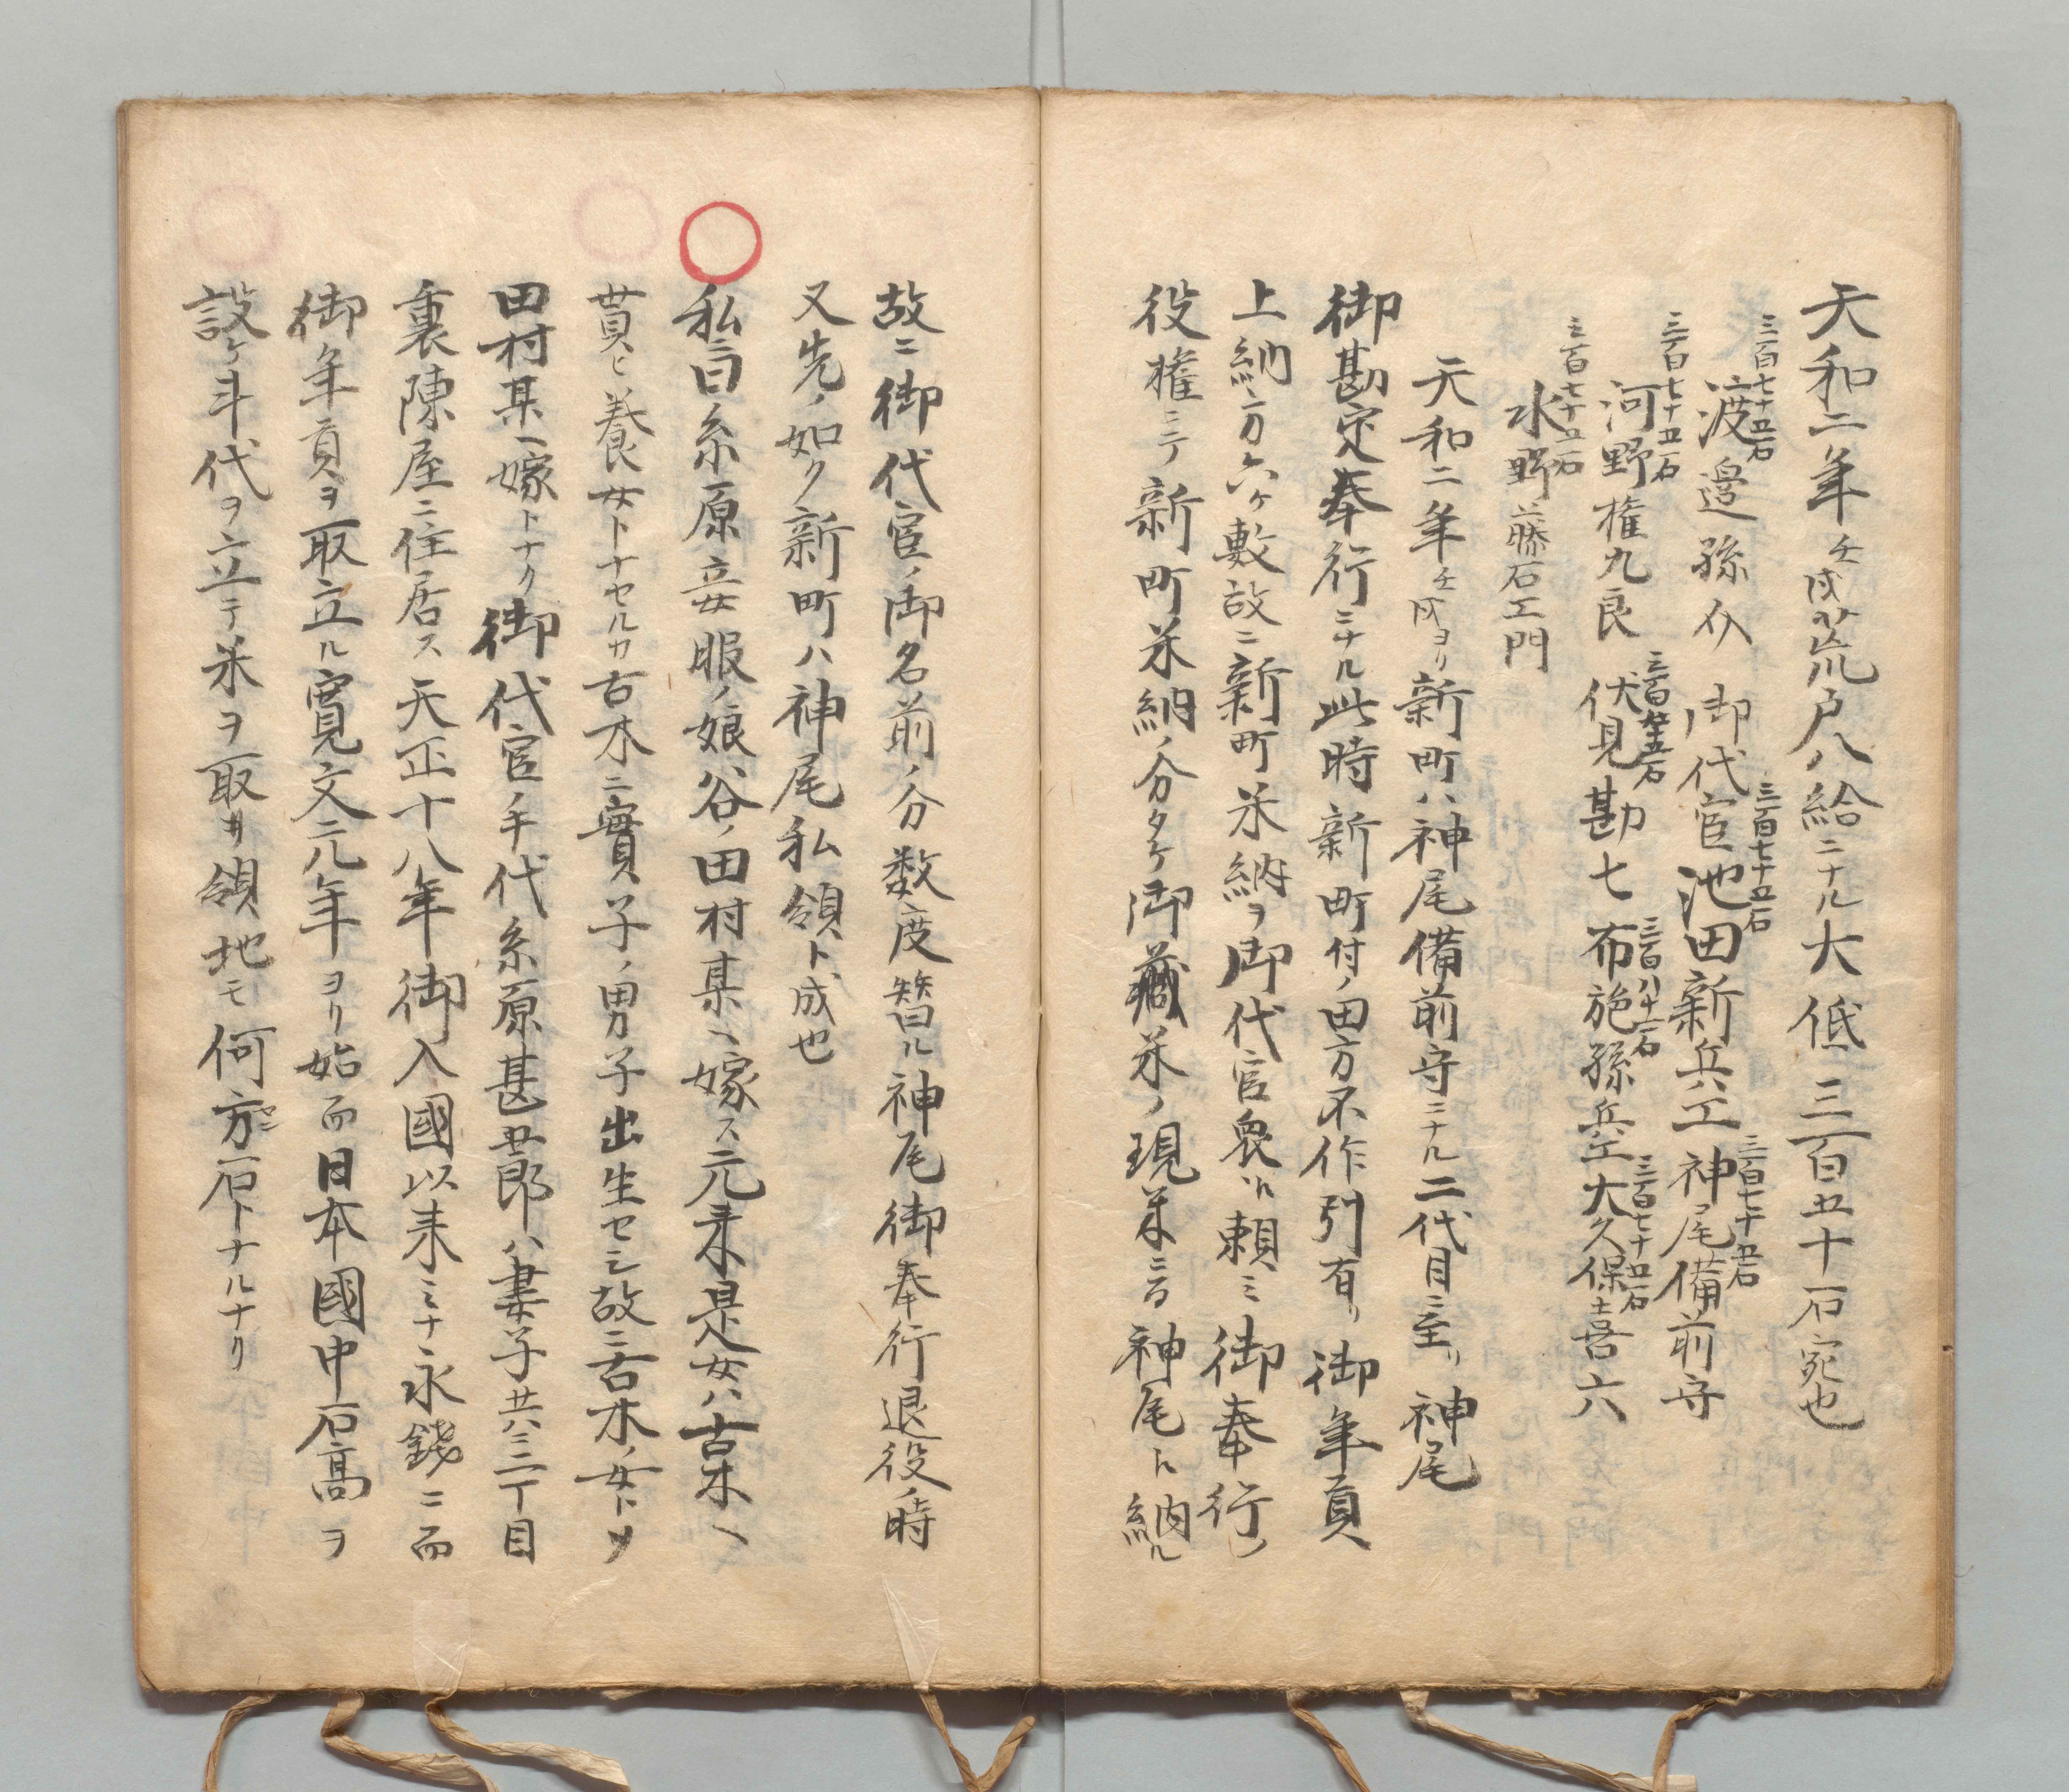 天和二年壬戌荒戸八給ニナル大低三百五十石宛也
三百七十五石
渡邉孫介 御代官池田新兵工 神尾備前守
三百七十五石 三百七十五石
三百七十五石
河野権九良 伏見勘七 布施孫兵工 大久保喜六
三百八十一石 三百七十五石
三百七十五石
水野藤右工門
天和二年壬戌ヨリ新町ハ神尾備前守ニナル二代目ニ至リ神尾
御勘定奉行ニナル此時新町付ノ田方不作引有リ御年貢
上納ノ方六ケ敷故ニ新町米納ヲ御代官衆ヘ頼ミ御奉行ノ
役権ニテ新町米納ノ分タケ御藏米ノ現米ニテ神尾ヘ納ル
故ニ御代官ノ御名前ノ分数度替ル神尾御奉行退役ノ時
又先ノ如ク新町ハ神尾私領ト成也
私ニ曰ク糸原妾服ノ娘谷ノ田村某ヘ嫁ス元来是女ハ古木ヘ
貰ヒ養女トナセルカ古木ニ實子ノ男子出生セシ故ニ古木ノ女トシテ
田村某ヘ嫁トナク御代官ノ手代糸原甚五郎ハ妻子共ニ二丁目
裏陳屋ニ住居ス天正十八年御入國以来ミナ永錢ニ而
御年貢ヲ取立ル寛文元年ヨリ始而日本國中石高ヲ
設ケ斗代ヲ立テ米ヲ取ㇼ領地モ何方石トナルナリ